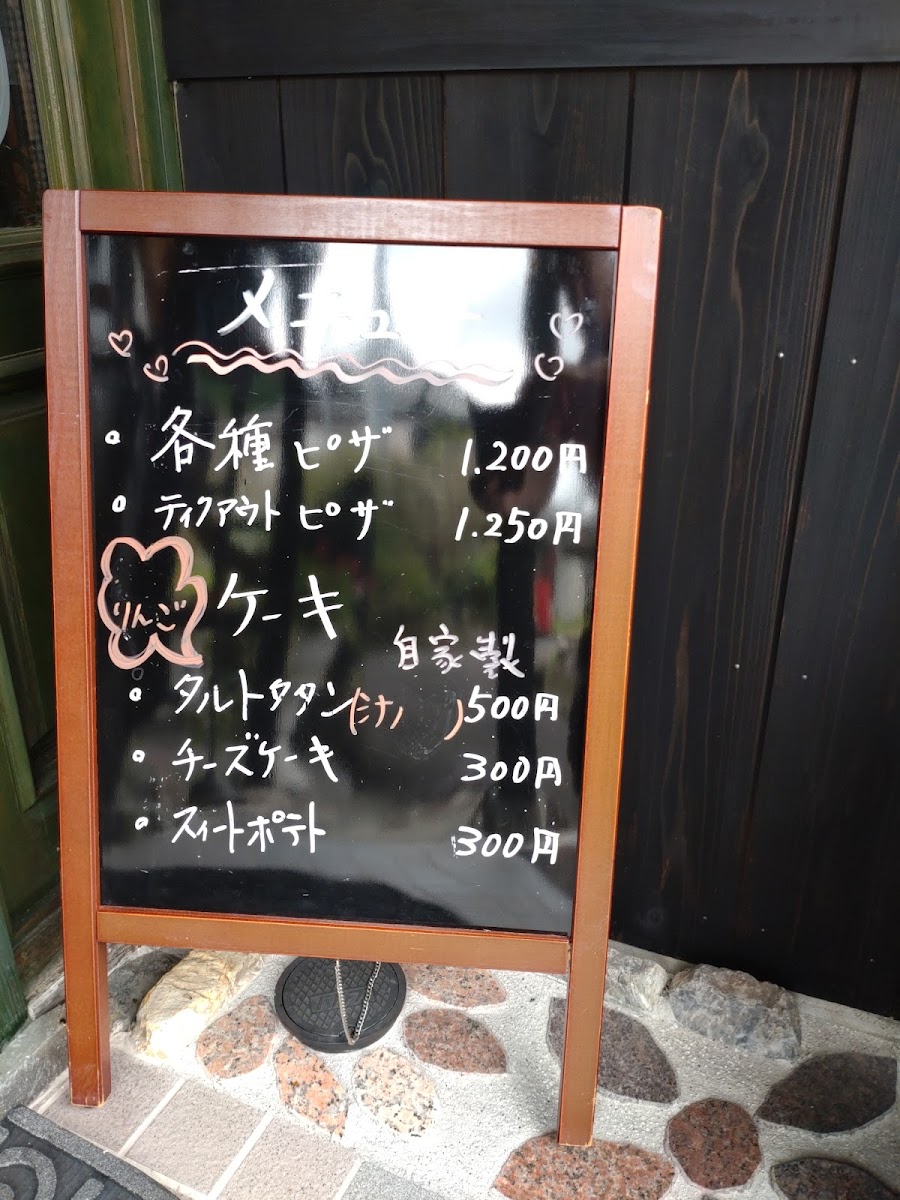 メニュー
各種 ピザ 1.200円
ティクアウト ピザ 1.250円
りんご ケーキ
自家製
タルトタタン 500円
チーズケーキ 300円
スィートポテト 300円